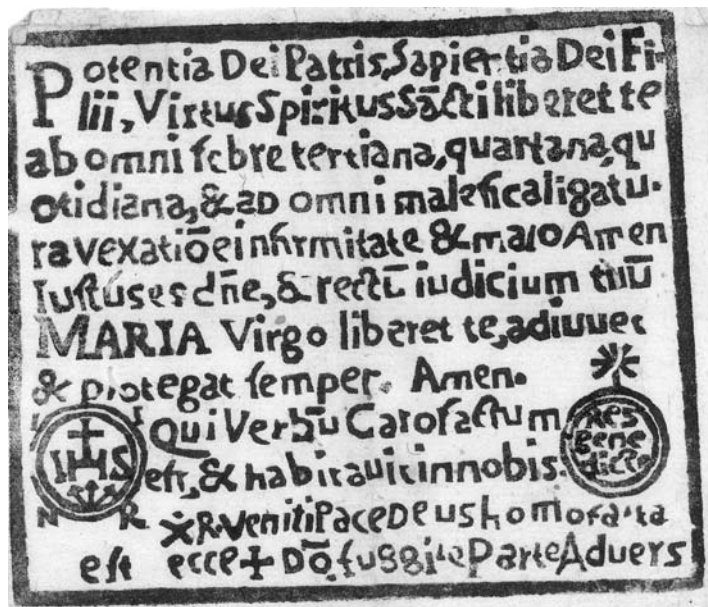 Potentia Dei Patris, Sapientia Dei Fi-
lii, Virtus Spiritus Sācti liberet te
ab omni febre tertiana, quartana, qu
otidiana, & ab omni malefica ligatu-
ra vexatiōe infirmitate & malo Amen
Iustus es dn̄e, & rectū iudicium tuū
MARIA Virgo liberet te, adiuuet
& protegat semper. Amen.
Qui Verbū Caro factum
est, & habitauit in nobis.
IHS
N R
Res
bene
dicte
R. Veniti Pace Deus homo
est ecce + Dō. fuggite Parte Aduers